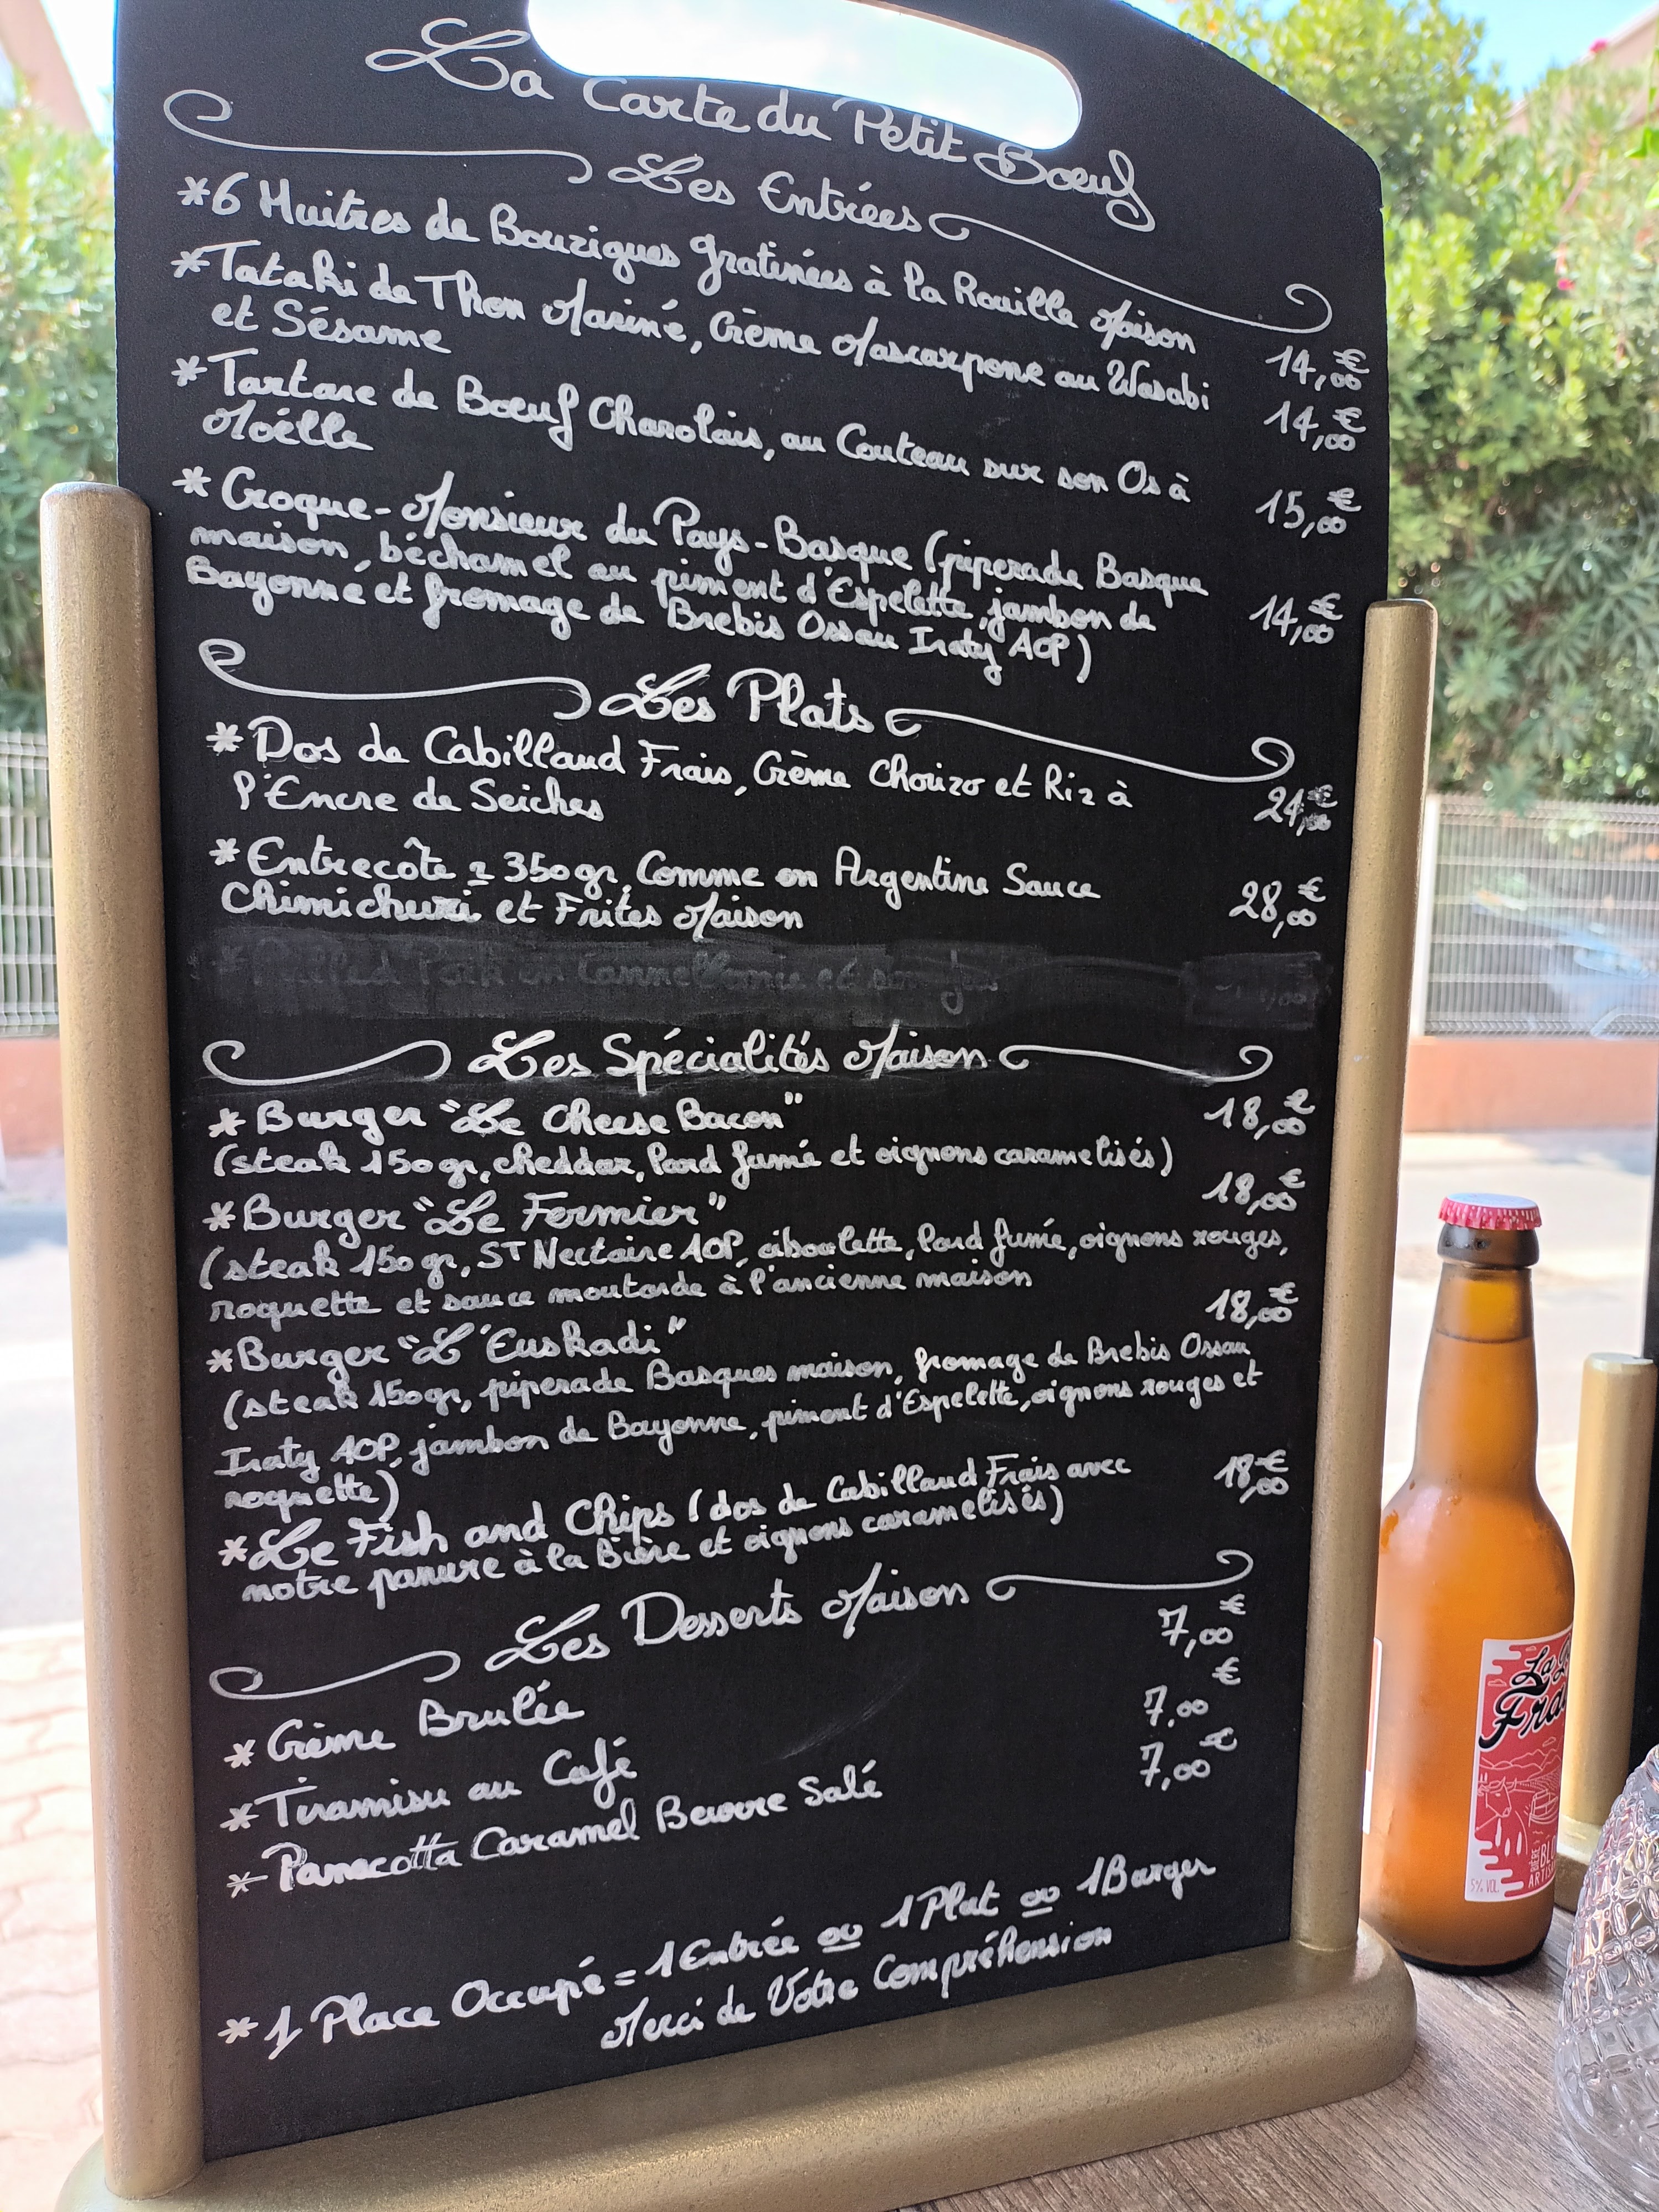 La Carte du Petit Bœuf
Les Entrées
*6 Huitres de Bouzigues gratinées à la Rouille Maison 14,00€
*Tataki de Thon Mariné, Crème Mascarpone au Wasabi 14,00€
et Sésame
*Tartare de Bœuf Charolais, au Couteau sur son Os à 15,00€
Moëlle
*Croque-Monsieur du Pays-Basque (piperade Basque
maison, béchamel au piment d'Espelette, jambon de 14,00€
Bayonne et fromage de Brebis Ossau Iraty AOP)
Les Plats
*Dos de Cabillaud Frais, Crème Chorizo et Riz à 24,00€
l'Encre de Seiches
*Entrecôte ± 350gr, Comme en Argentine Sauce 28,00€
Chimichurri et Frites Maison
*Pulled Pork en et son jus
Les Spécialités Maison
*Burger "Le Cheese Bacon" 18,00€
(steak 150gr, cheddar, lard fumé et oignons caramelisés)
*Burger "Le Fermier" 18,00€
(steak 150gr, ST Nectaire AOP, ciboulette, lard fumé, oignons rouges,
roquette et sauce moutarde à l'ancienne maison
*Burger "L'Euskadi" 18,00€
(steak 150gr, piperade Basques maison, fromage de Brebis Ossau
Iraty AOP, jambon de Bayonne, piment d'Espelette, oignons rouges et
roquette)
*Le Fish and Chips (dos de Cabillaud Frais avec 18,00€
notre panure à la Bière et oignons caramelisés)
Les Desserts Maison
*Crème Brulée 7,00€
*Tiramisu au Café 7,00€
*Panacotta Caramel Beurre Salé 7,00€
*1 Place Occupé = 1 Entrée ou 1 Plat ou 1 Burger
Merci de Votre Compréhension
La
Fra
BIÈRE
BL
5% VOL.